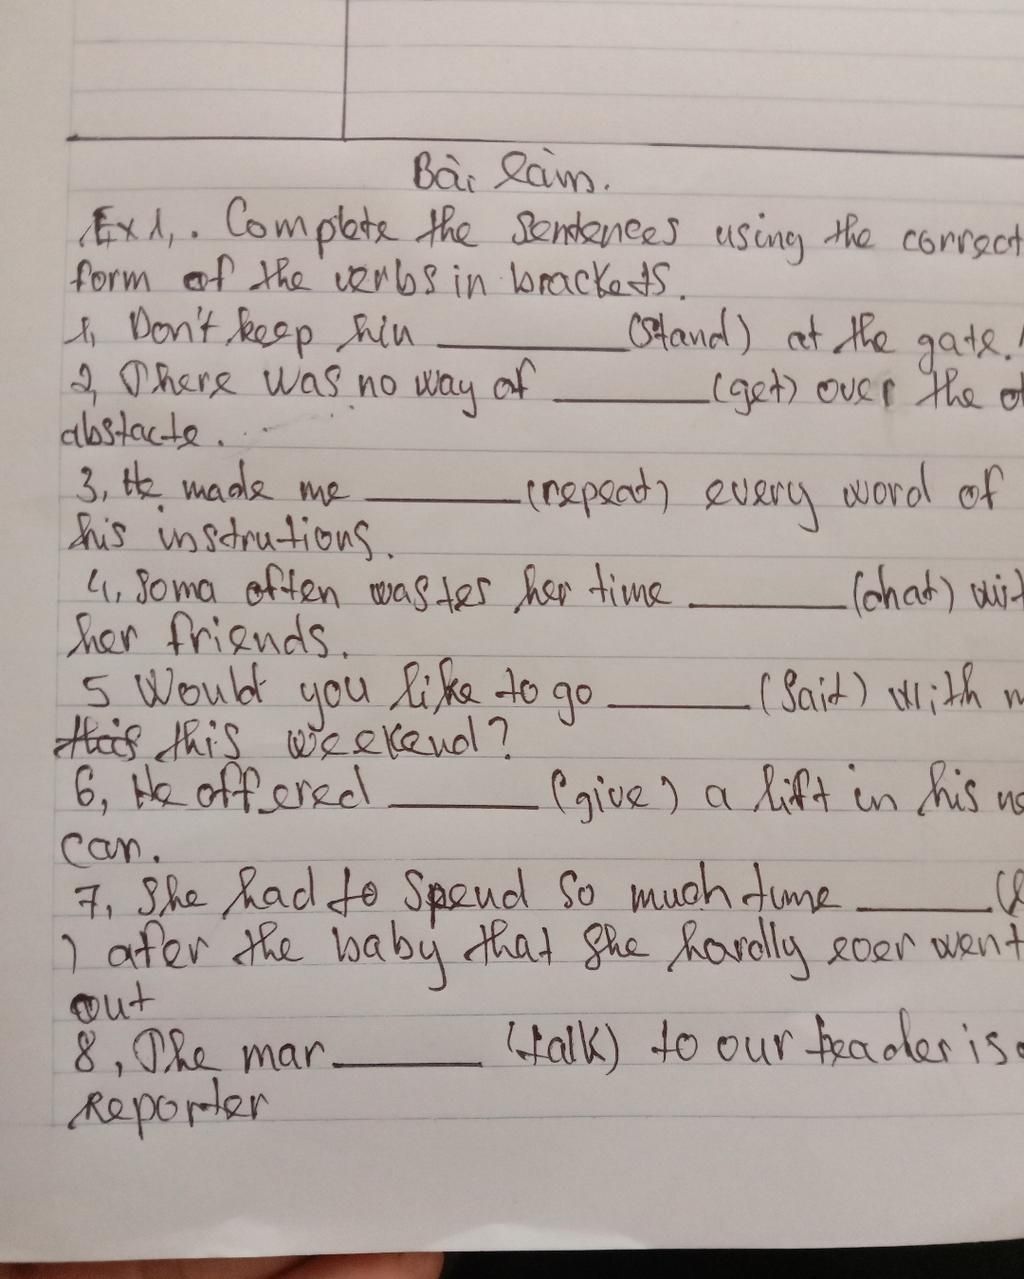 Bài làm.
Ex1,. Complete the sentences using the correct
form of the verbs in brackets.
1, Don't keep him ______ (stand) at the gate.
2, There was no way of ______ (get) over the
abstacte.
3, He made me ______ (repeat) every word of
his instrutions.
4, Soma often wastes her time ______ (chat) wit
her friends.
5 Would you like to go ______ (sait) with
this weekend?
6, He offered ______ (give) a lift in his
car.
7, She had to spend so much time ______ (
) after the baby that she hardly ever went
out
8, The man ______ (talk) to our leader is
Reporter